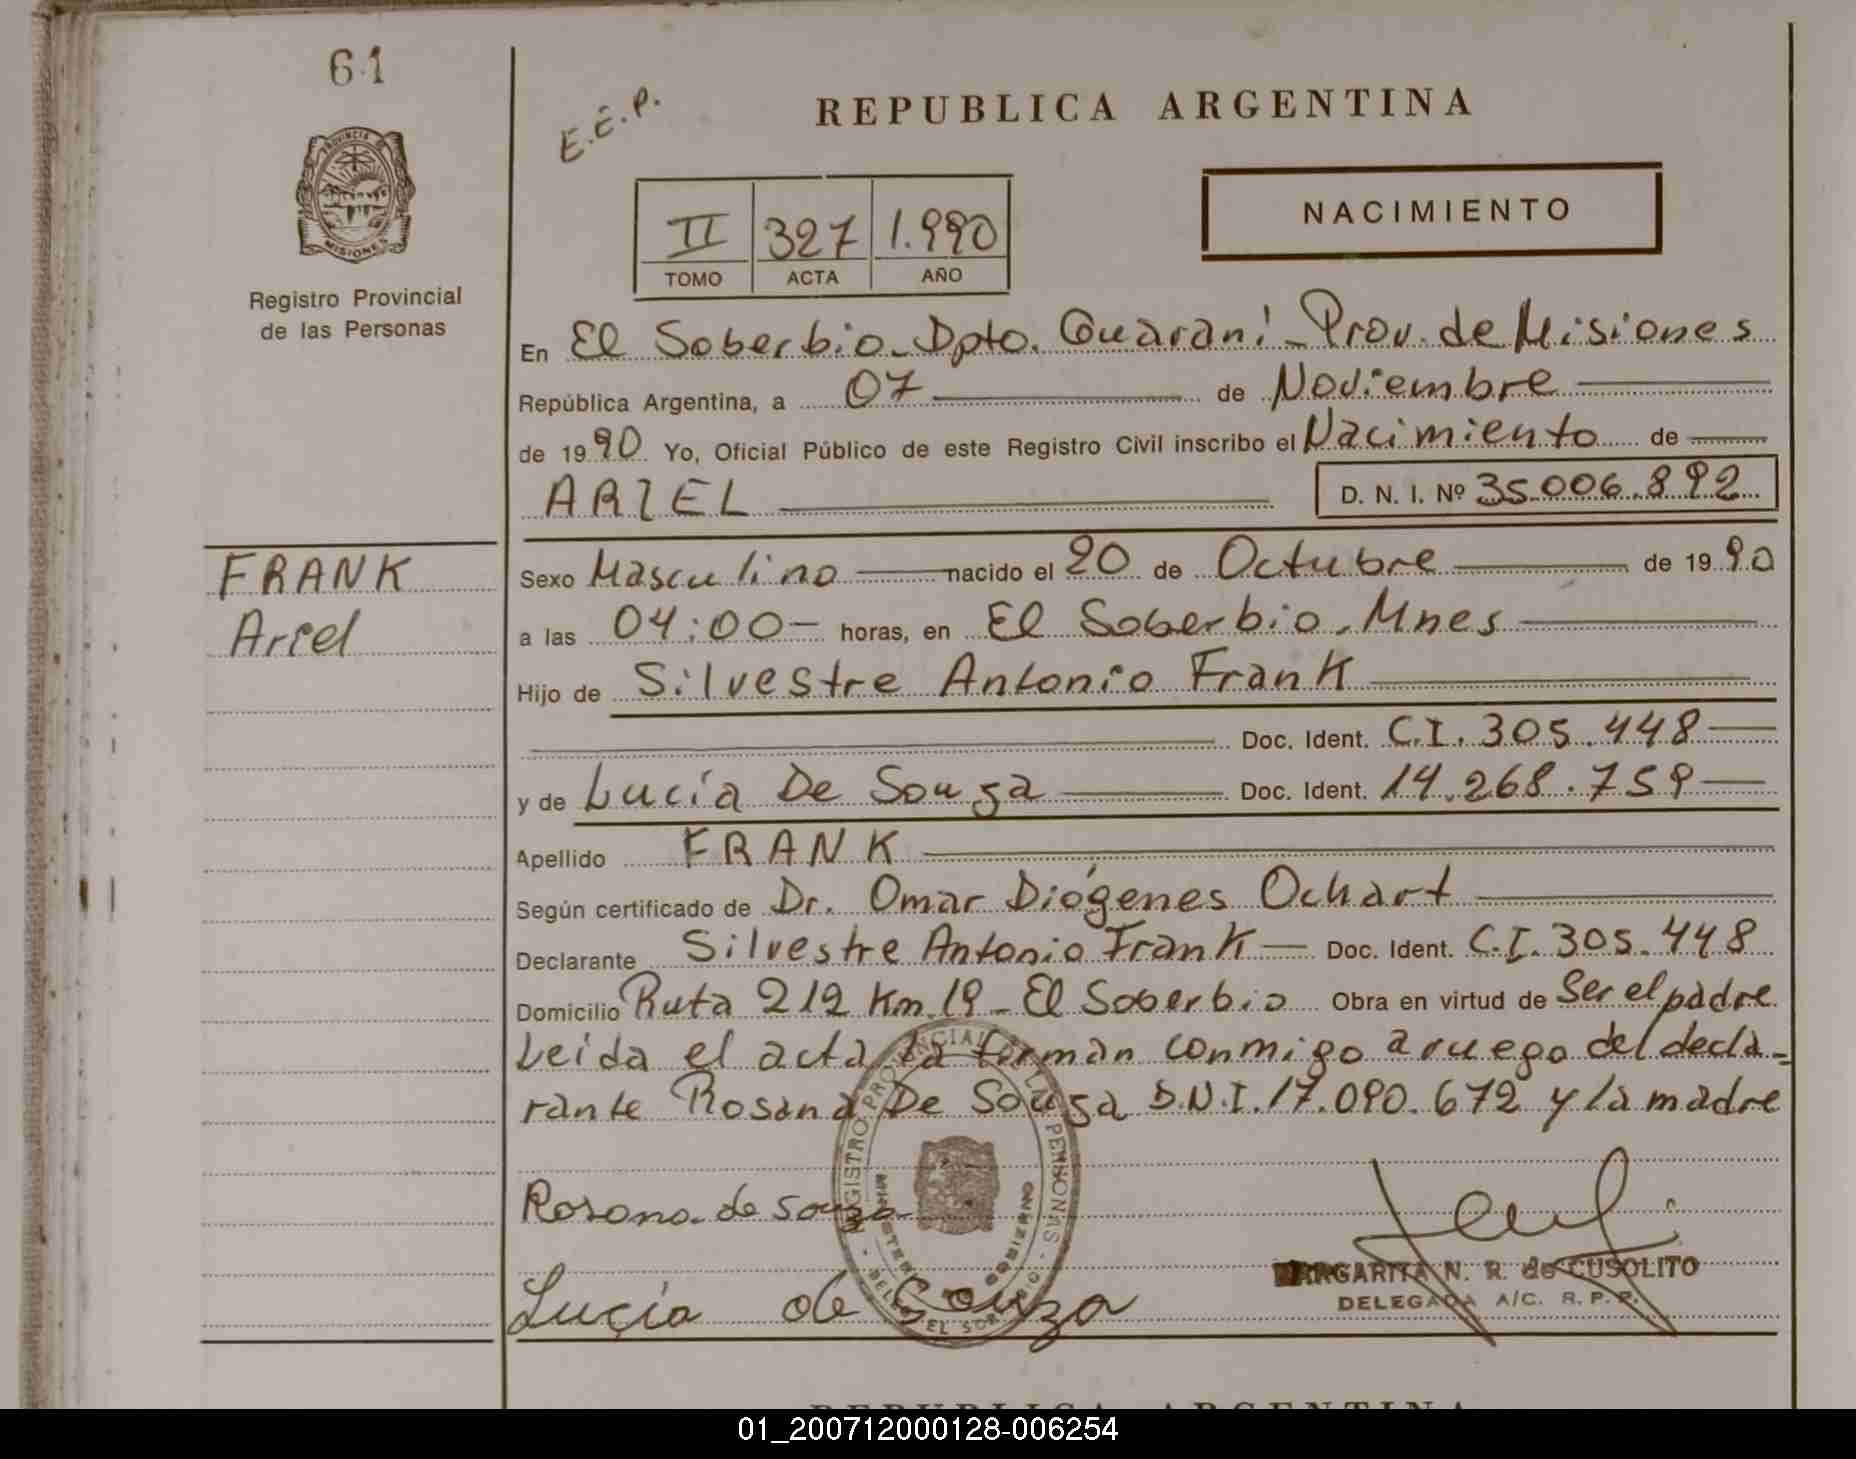 61
E.E.P.
REPUBLICA ARGENTINA
PROVINCIA DE
MISIONES
Registro Provincial
de las Personas
II 327 1.990
TOMO ACTA AÑO
NACIMIENTO
En El Soberbio_Dpto. Guaraní_Prov. de Misiones
República Argentina, a 07 de Noviembre
de 1990 Yo, Oficial Público de este Registro Civil inscribo el Nacimiento de
ARIEL D. N. I. Nº 35.006.892
FRANK
Ariel
Sexo Masculino nacido el 20 de Octubre de 1990
a las 04:00- horas, en El Soberbio. Mnes
Hijo de Silvestre Antonio Frank
Doc. Ident. C.I. 305.448
y de Lucía De Souza Doc. Ident. 14.268.759
Apellido FRANK
Según certificado de Dr. Omar Diógenes Ochart
Declarante Silvestre Antonio Frank Doc. Ident. C.I. 305.448
Domicilio Ruta 212 Km.19_El Soberbio Obra en virtud de Ser el padre
Leída el acta la firman conmigo a ruego del decla-
rante Rosana De Souza D.N.I. 17.090.672 y la madre
REGISTRO PROVINCIAL DE LAS PERSONAS
MINISTERIO DE GOBIERNO
Rosana de Souza
Lucía de Souza
MARGARITA N. R. de CUSOLITO
DELEGADA A/C. R.P.P.
REPUBLICA ARGENTINA
01_200712000128-006254